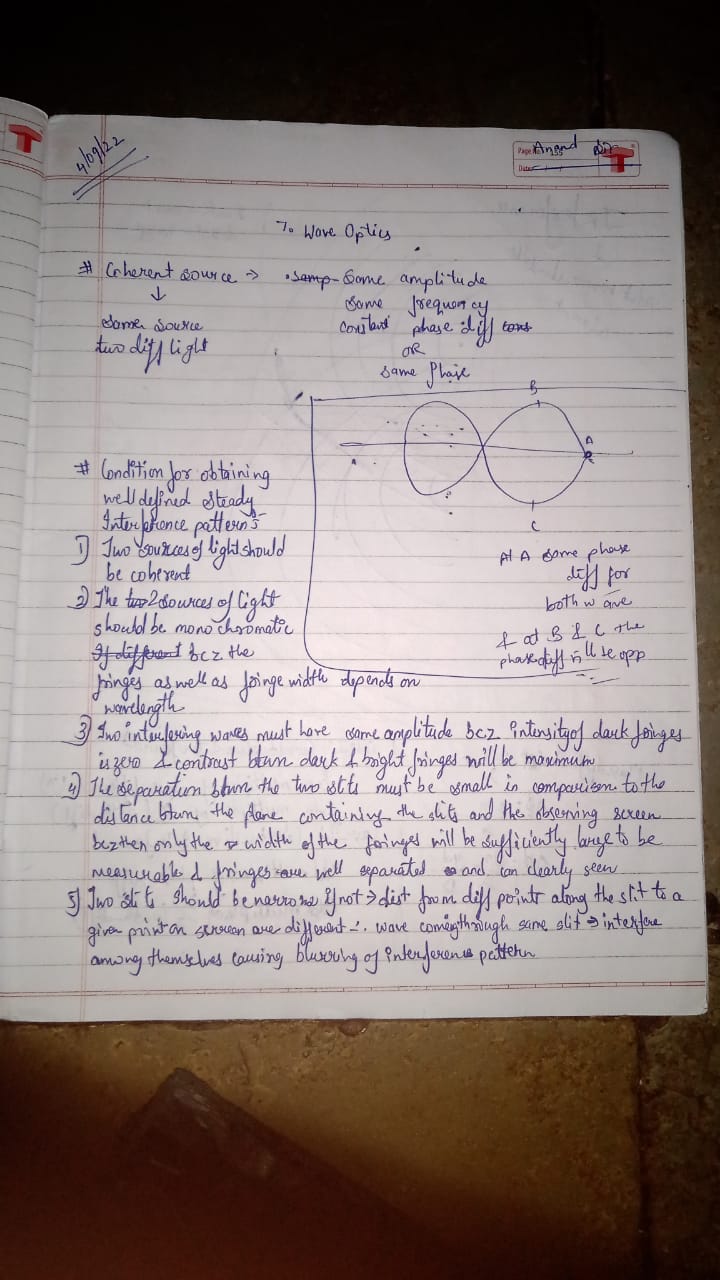 T
4/09/22
Page No. 155
Anand
Date:
T
7. Wave Optics
# Coherent source → . samp- Same amplitude
↓ Same frequency
Same source constant phase diff cons
two diff light OR
Same Phase
B
A
# Condition for obtaining
well defined steady
Interference patterns
C
1) Two sources of light should
be coherent
At A some phase
diff for
both wave
& at B & C the
phase diff ill se opp
2) The two 2 sources of light
should be monochromatic
If different bcz the
fringes as well as fringe width depends on
wavelength
3) Two interfering waves must have same amplitude bcz intensity of dark fringes
is zero & contrast btwn dark & bright fringes will be maximum
4) The separation btwn the two slits must be small in comparison to the
distance btwn the plane containing the slits and the observing screen
bcz then only the width of the fringes will be sufficiently large to be
measurable & fringes are well separated and can clearly seen
5) Two slits should be narrow if not → dist from diff points along the slit to a
given point on screen are different ∴ wave coming through same slit → interfere
among themselves causing blurring of interference pattern